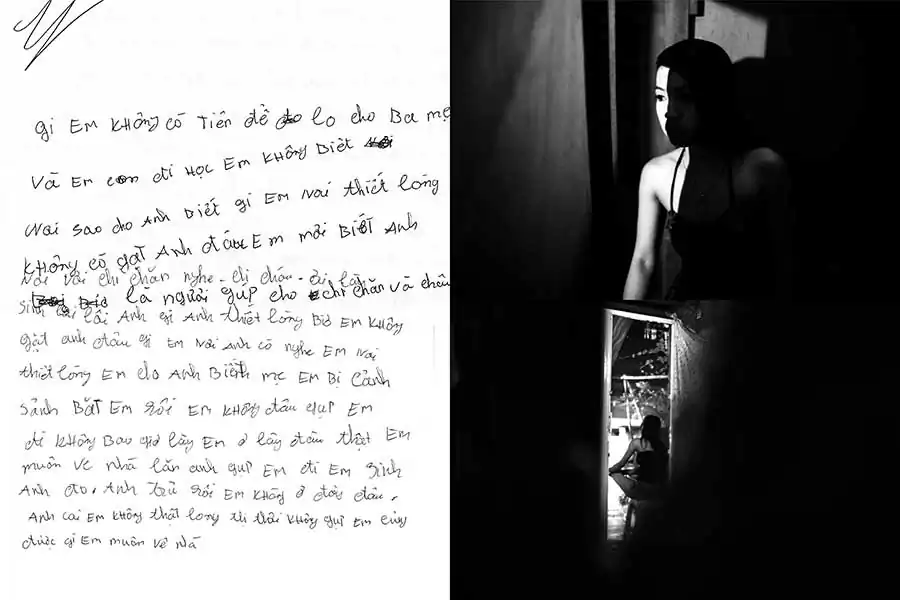 gì Em KHông có Tiền để lo cho Ba mẹ
Và Em con đi Học Em KHông Biết
Nói sao cho Anh Biết gì Em Nói thiết lòng
KHông có gạt Anh đâu Em mới Biết Anh
Nói Với chị chăn nghe chị cháu
là người giúp cho chị chăn và cháu
lỗi Anh gì Anh thiết lòng Em KHông
gạt anh đâu gì Em Nói Anh có nghe Em Nói
thiết lòng Em cho Anh Biết mẹ Em Bị Cảnh
sảnh BắT Em rồi Em KHông đâu giúp Em
đi KHông Bao giờ lấy Em ở lấy đâu thật Em
muốn về nhà lần anh giúp Em đi Em Sinh
Anh đó. Anh trừ rồi Em KHông ở đây đâu.
Anh coi Em KHông thật long thì thôi KHông giúp Em cũng
được gì Em muốn về Nhà